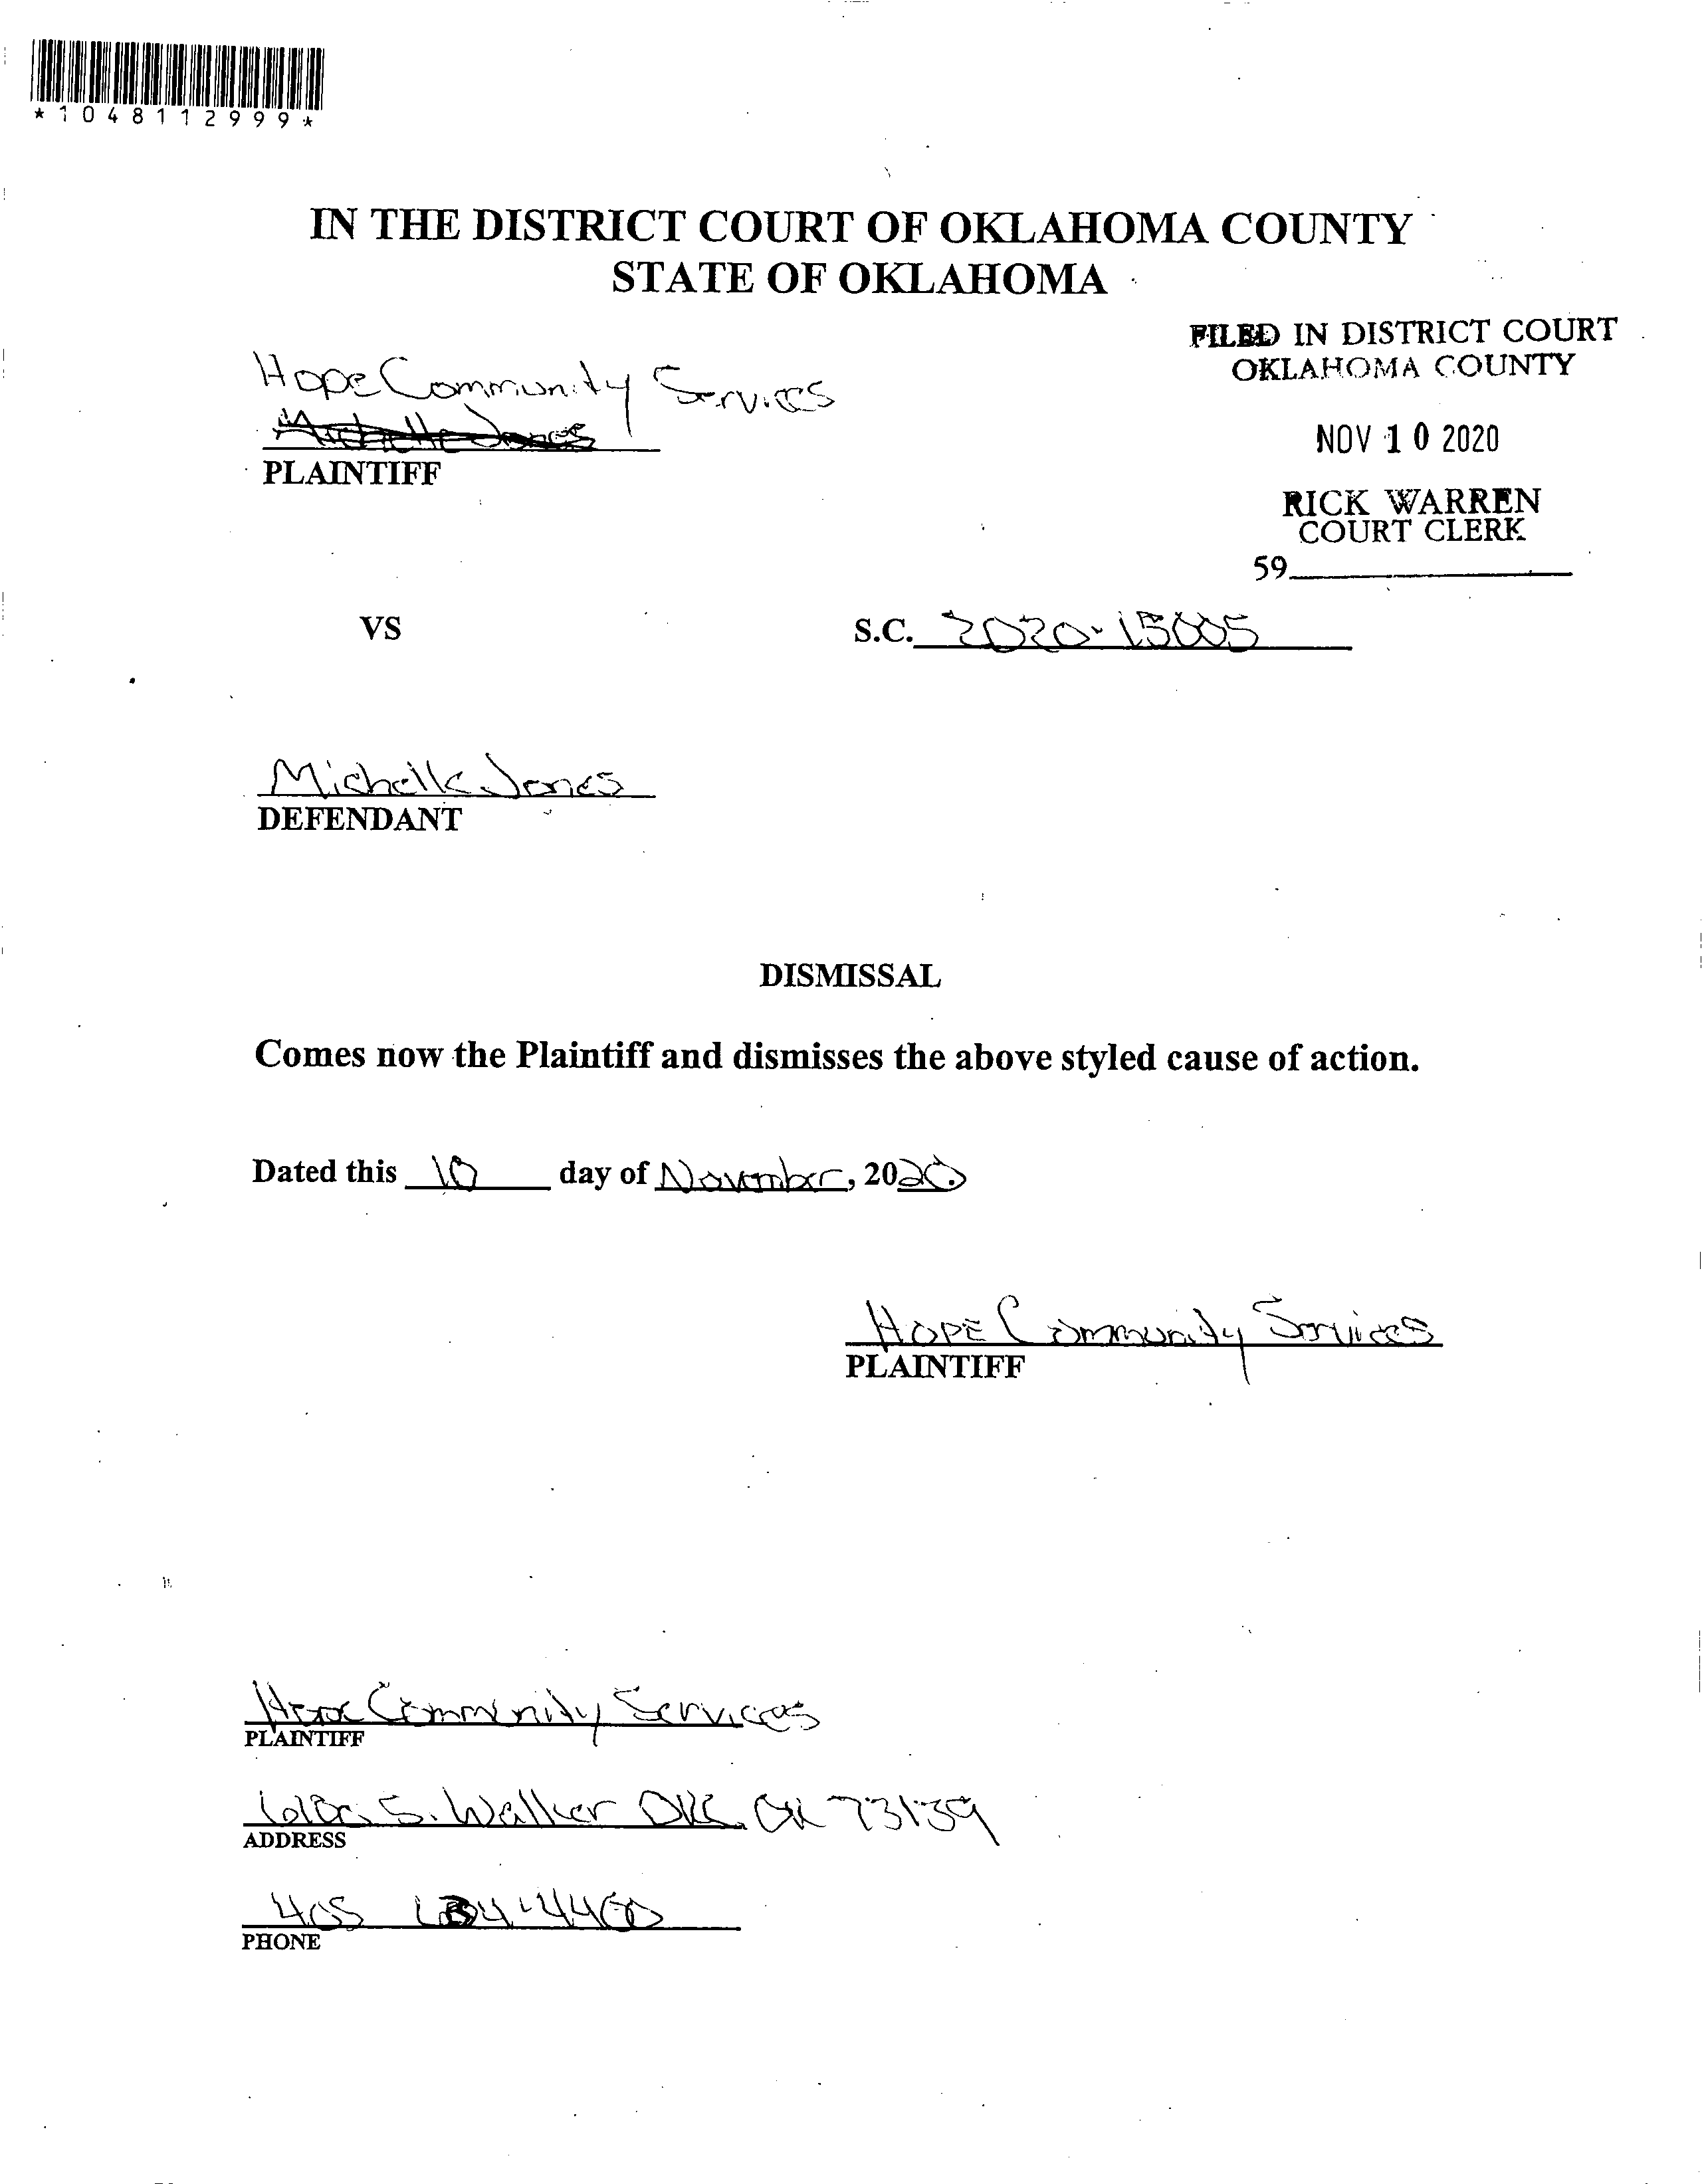 *1048112999*
IN THE DISTRICT COURT OF OKLAHOMA COUNTY
STATE OF OKLAHOMA
FILED IN DISTRICT COURT
OKLAHOMA COUNTY
NOV 10 2020
RICK WARREN
COURT CLERK
59
Hope Community Services
Michelle Jones
PLAINTIFF
VS
S.C. 2020-15005
Michelle Jones
DEFENDANT
DISMISSAL
Comes now the Plaintiff and dismisses the above styled cause of action.
Dated this 10 day of November, 2020.
Hope Community Services
PLAINTIFF
Hope Community Services
PLAINTIFF
S. Walker OKC, OK 73139
ADDRESS
405
PHONE